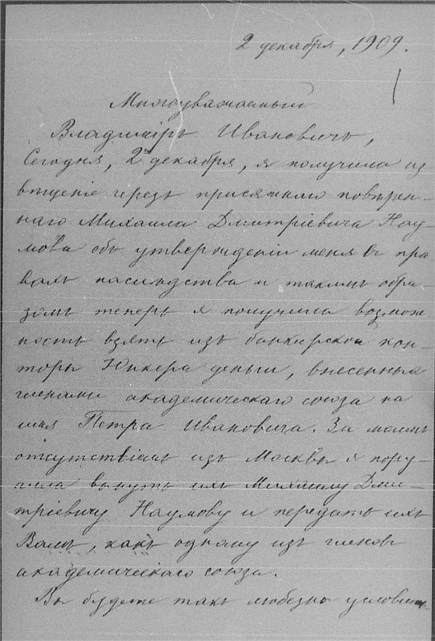 2 декабря, 1909.
Многоуважаемый
Владиміръ Ивановичъ,
Сегодня, 2го декабря, я получила из
вѣщеніе черезъ присяжнаго повѣрен-
наго Михаила Дмитріевича Нау
мова объ утвержденіи меня въ пра
вахъ наслѣдства и такимъ обра-
зомъ теперь я получила возмож
ность взять изъ банкирской кон
торы Юнкера деньги, внесенныя
членами академическаго союза на
имя Петра Ивановича. За моимъ
отсутствіемъ изъ Москвы я пору
чила вынуть ихъ Михаилу Дми-
тріевичу Наумову и передать ихъ
Вамъ, какъ одному изъ членовъ
академическаго союза.
Вы будете такъ любезны